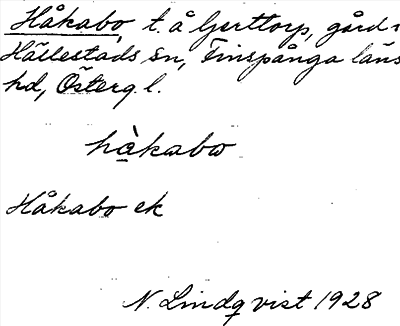 Håkabo, t. å Gerttorp, gård i
Hällestads sn, Finspånga läns
hd, Österg. l.
hàkabω
Håkabo ek
N. Lindqvist 1928